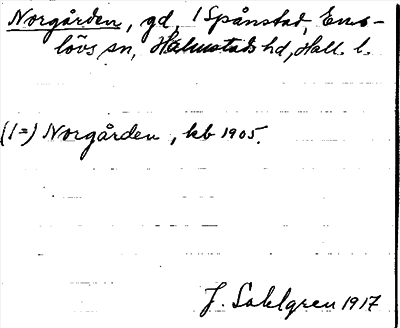 Norgården, gd, 1 Spånstad, Ens-
lövs sn, Halmstads hd, Hall. l.
(1=) Norgården, kb 1905.
J. Sahlgren 1917